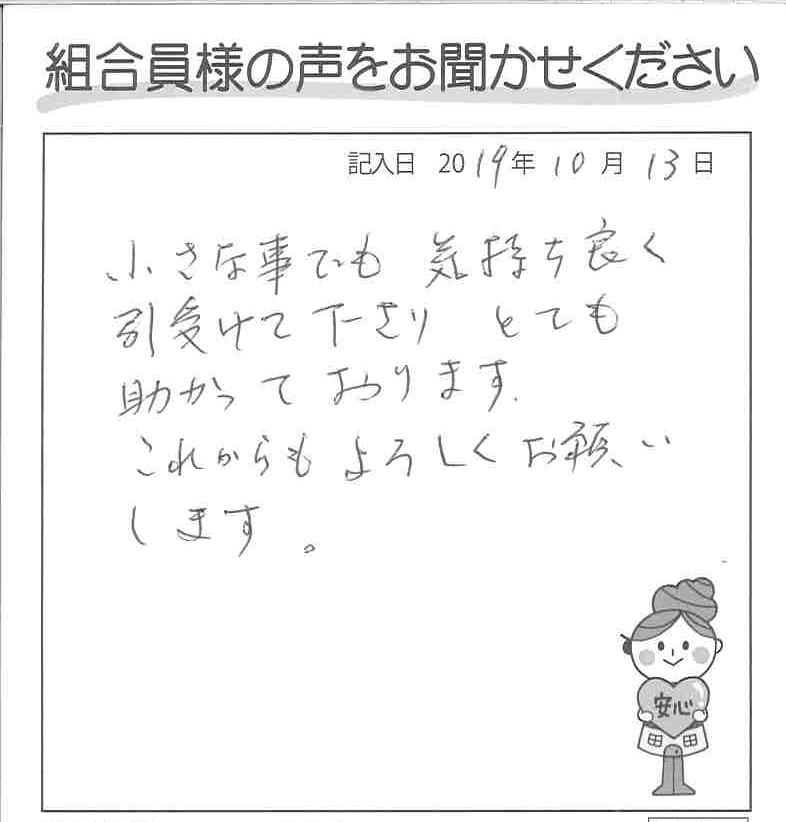 組合員様の声をお聞かせください
記入日 2019年 10月 13日
小さな事でも 気持ち良く
引受けて下さり とても
助かっております.
これからもよろしくお願い
します。
安心